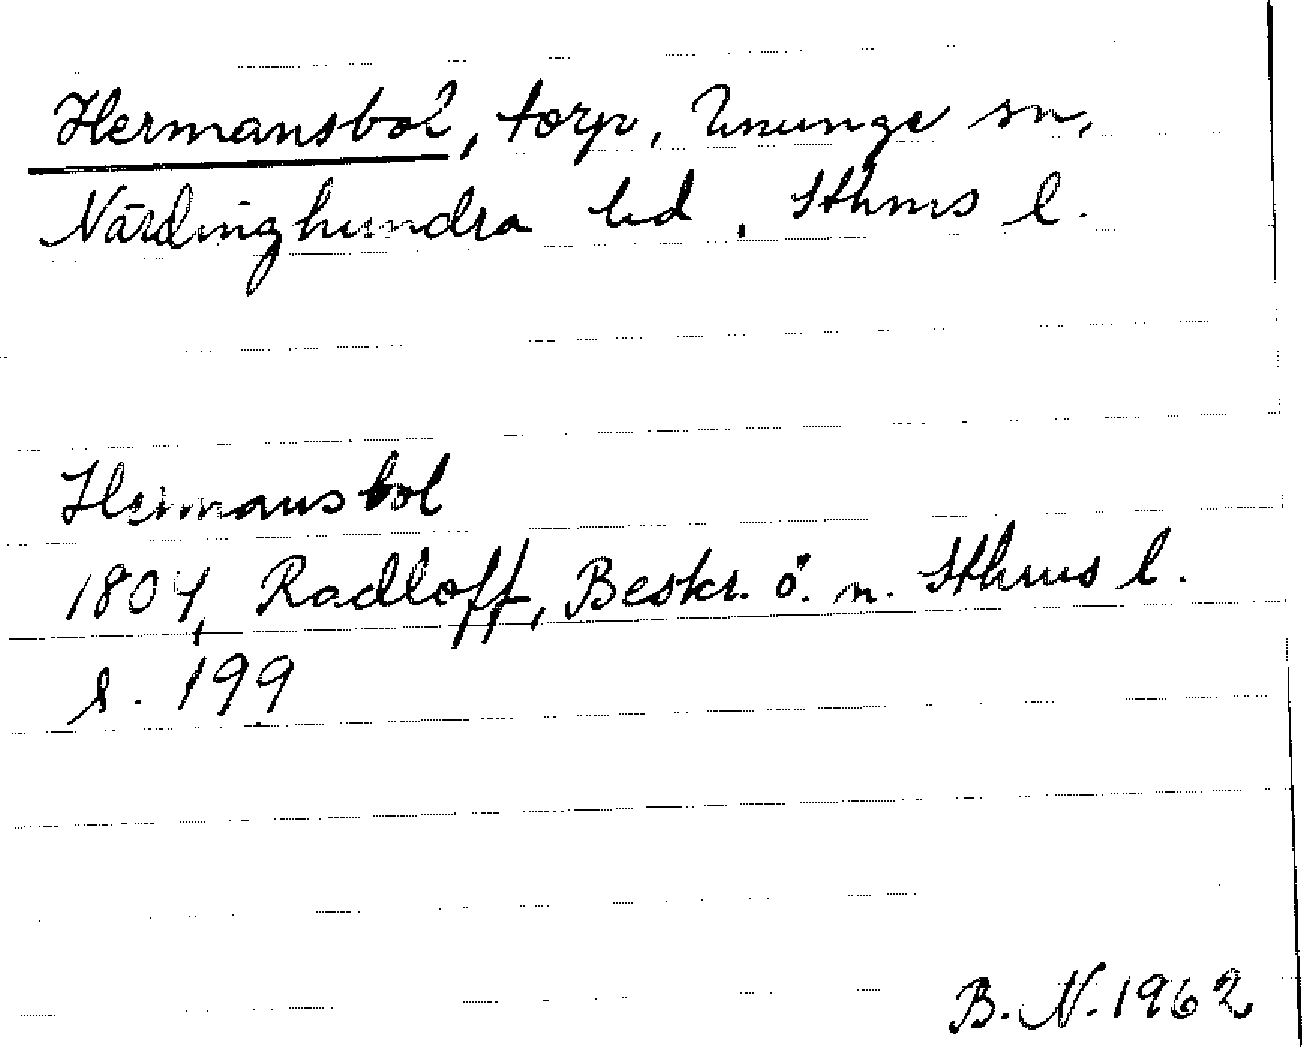 Hermansbol, torp, Ununge sn,
Närdinghundra hd, Sthms l.
Hermansbol
1804, Radloff, Beskr. ö. n. Sthms l.
s. 199
B. N. 1962